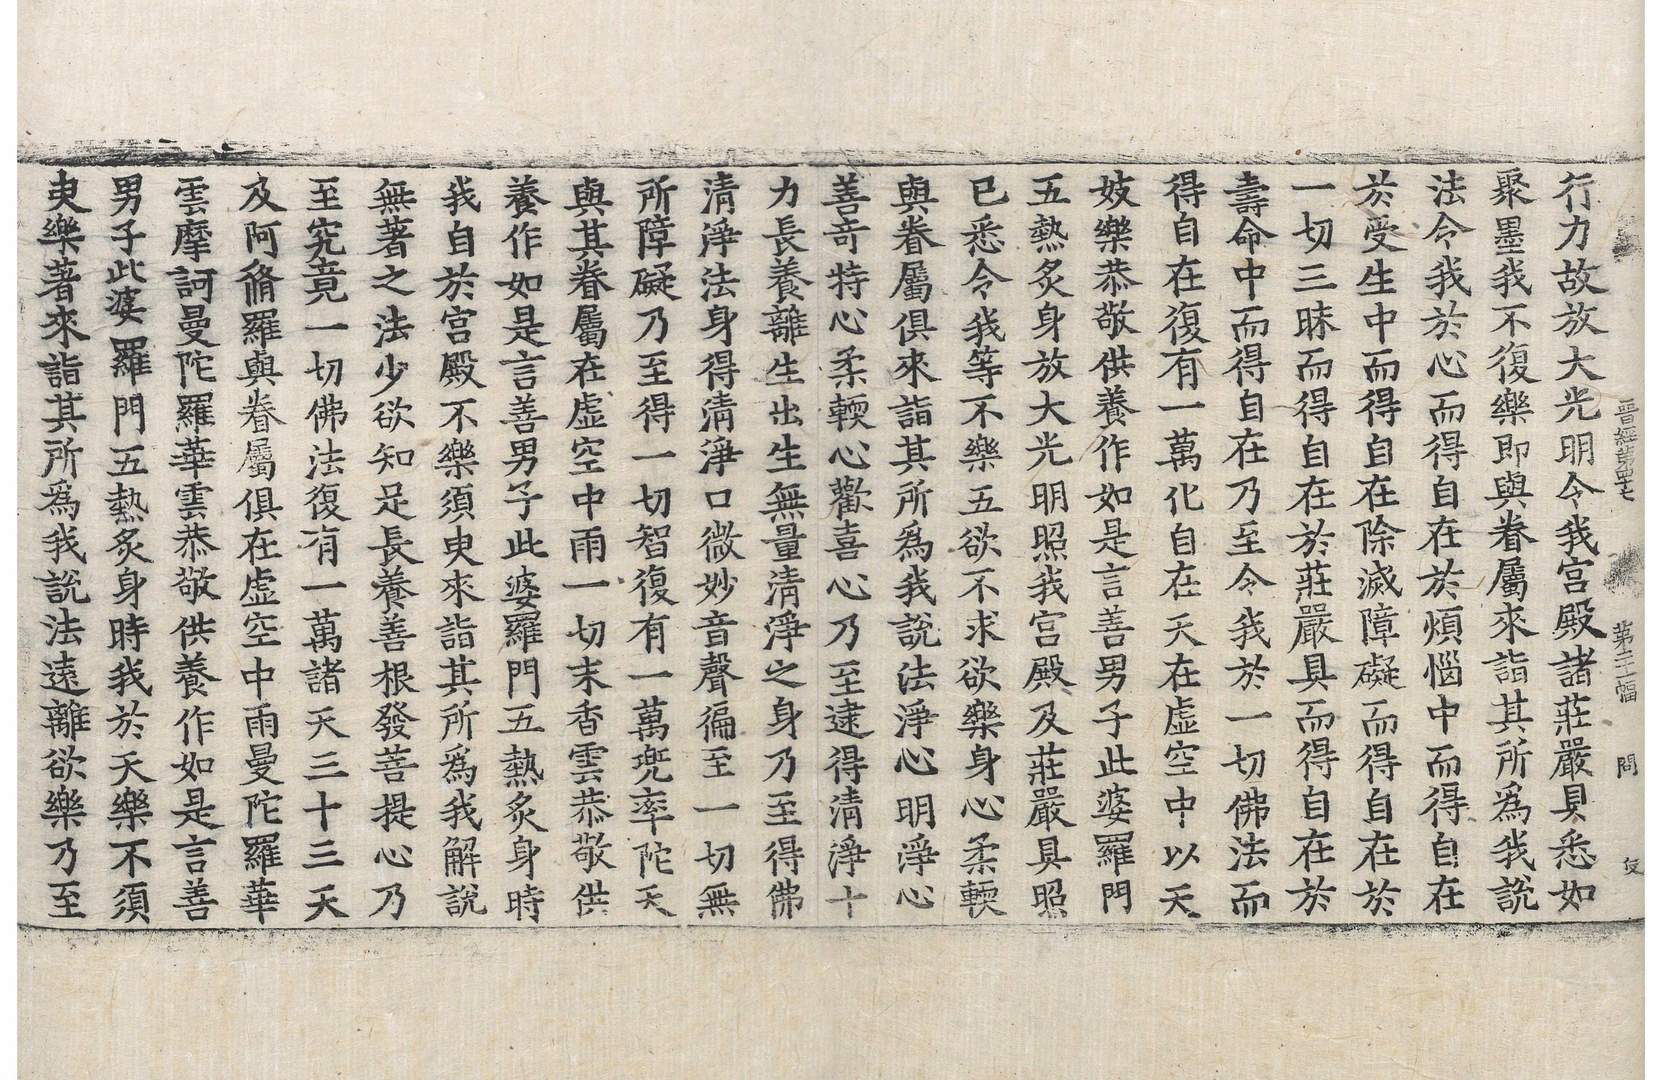 晋經第四十七 第二十一幅 問 伎
行力故放大光明令我宮殿諸莊嚴具悉如
聚墨我不復樂即與眷屬來詣其所爲我說
法令我於心而得自在於煩惱中而得自在
於受生中而得自在除滅障礙而得自在於
一切三昧而得自在於莊嚴具而得自在於
壽命中而得自在乃至令我於一切佛法而
得自在復有一萬化自在天在虛空中以天
妓樂恭敬供養作如是言善男子此婆羅門
五熱炙身放大光明照我宮殿及莊嚴具照
已悉令我等不樂五欲不求欲樂身心柔輭
與眷屬俱來詣其所爲我說法淨心明淨心
善奇特心柔輭心歡喜心乃至逮得清淨十
力長養離生出生無量清淨之身乃至得佛
清淨法身得清淨口微妙音聲徧至一切無
所障礙乃至得一切智復有一萬兜率陀天
與其眷屬在虛空中雨一切末香雲恭敬供
養作如是言善男子此婆羅門五熱炙身時
我自於宮殿不樂須臾來詣其所爲我解說
無著之法少欲知足長養善根發菩提心乃
至究竟一切佛法復有一萬諸天三十三天
及阿脩羅與眷屬俱在虛空中雨曼陀羅華
雲摩訶曼陀羅華雲恭敬供養作如是言善
男子此婆羅門五熱炙身時我於天樂不須
臾樂著來詣其所爲我說法遠離欲樂乃至